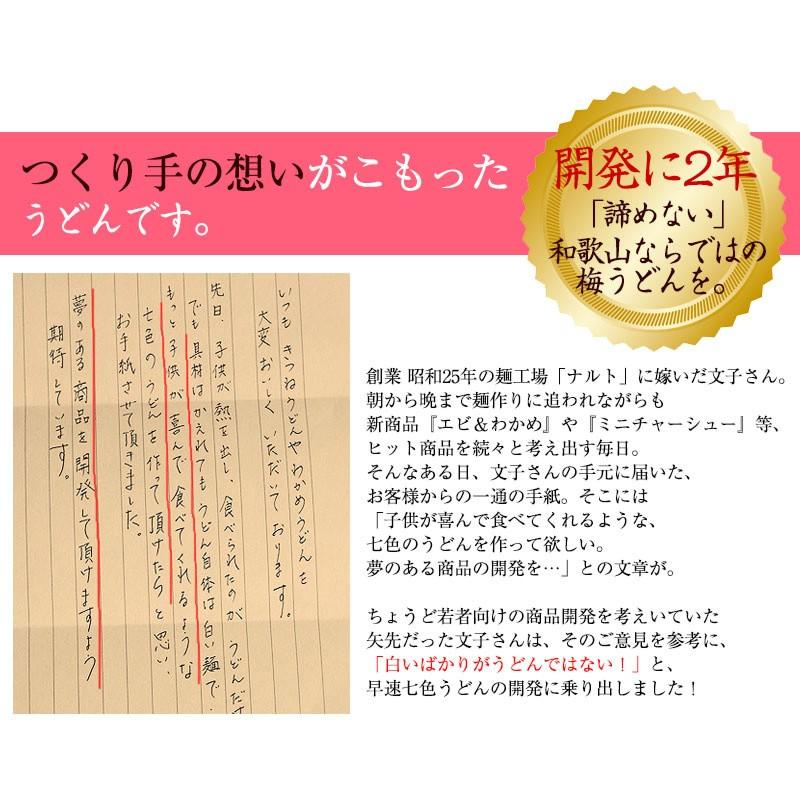 つくり手の想いがこもった
うどんです。
開発に2年
「諦めない」
和歌山ならではの
梅うどんを。
いつもきつねうどんやわかめうどんを
大変おいしくいただいております。
先日、子供が熱を出し、食べられたのがうどんだけ
でも具材はかえれてもうどん自体は白い麺で、
もっと子供が喜んで食べてくれるような
七色のうどんを作って頂けたらと思い、
お手紙させて頂きました。
夢のある商品を開発して頂けますよう
期待しています。
創業 昭和25年の麺工場「ナルト」に嫁いだ文子さん。
朝から晩まで麺作りに追われながらも
新商品『エビ&わかめ』や『ミニチャーシュー』等、
ヒット商品を続々と考え出す毎日。
そんなある日、文子さんの手元に届いた、
お客様からの一通の手紙。そこには
「子供が喜んで食べてくれるような、
七色のうどんを作って欲しい。
夢のある商品の開発を…」との文章が。
ちょうど若者向けの商品開発を考えいていた
矢先だった文子さんは、そのご意見を参考に、
「白いばかりがうどんではない!」と、
早速七色うどんの開発に乗り出しました!